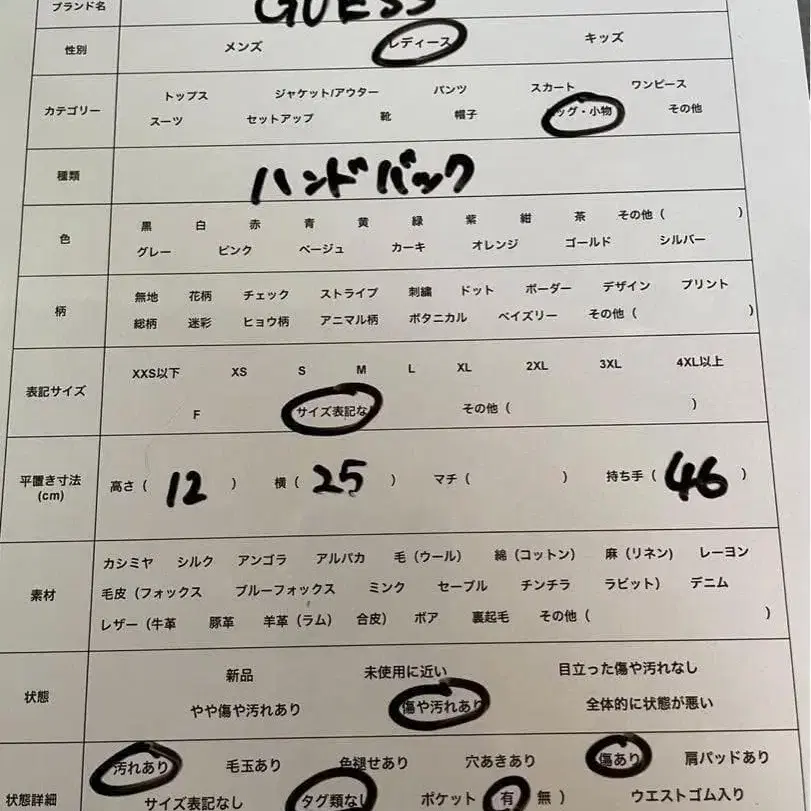 ブランド名 GUESS
性別 メンズ レディース キッズ
カテゴリー トップス ジャケット/アウター パンツ スカート ワンピース
スーツ セットアップ 靴 帽子 バッグ・小物 その他
種類 ハンドバック
色 黒 白 赤 青 黄 緑 紫 紺 茶 その他( )
グレー ピンク ベージュ カーキ オレンジ ゴールド シルバー
柄 無地 花柄 チェック ストライプ 刺繍 ドット ボーダー デザイン プリント
総柄 迷彩 ヒョウ柄 アニマル柄 ボタニカル ペイズリー その他( )
表記サイズ XXS以下 XS S M L XL 2XL 3XL 4XL以上
F サイズ表記なし その他( )
平置き寸法
(cm) 高さ( 12 ) 横( 25 ) マチ( ) 持ち手( 46 )
素材 カシミヤ シルク アンゴラ アルパカ 毛(ウール) 綿(コットン) 麻(リネン) レーヨン
毛皮(フォックス ブルーフォックス ミンク セーブル チンチラ ラビット) デニム
レザー(牛革 豚革 羊革(ラム) 合皮) ボア 裏起毛 その他( )
状態 新品 未使用に近い 目立った傷や汚れなし
やや傷や汚れあり 傷や汚れあり 全体的に状態が悪い
状態詳細 汚れあり 毛玉あり 色褪せあり 穴あきあり 傷あり 肩パッドあり
サイズ表記なし タグ類なし ポケット 有 無 ) ウエストゴム入り